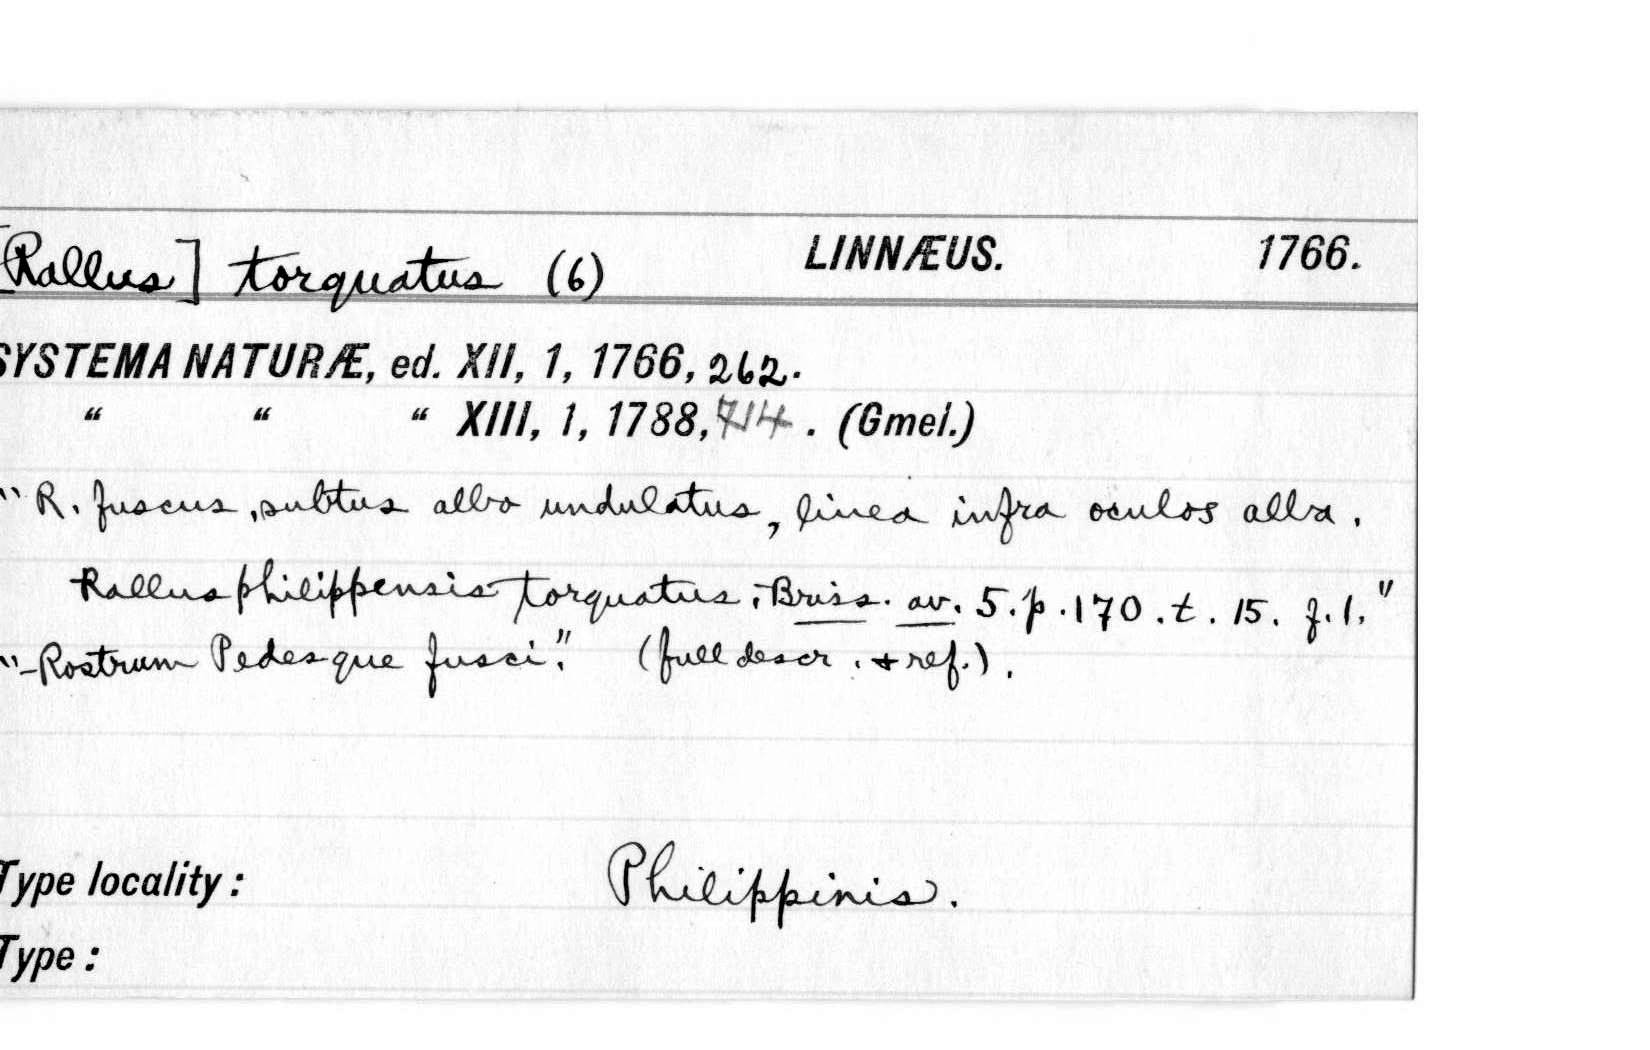 [Rallus] torquatus (6) LINNÆUS. 1766.
SYSTEMA NATURÆ, ed. XII, 1, 1766, 262.
“ “ “ XIII, 1, 1788, 714. (Gmel.)
"R. fuscus, subtus albo undulatus, linea infra oculos alba.
Rallus philippensis torquatus. Briss. av. 5. p. 170. t. 15. f. 1."
"-Rostrum Pedesque fusci". (full descr. + ref.).
Type locality: Philippinis.
Type: